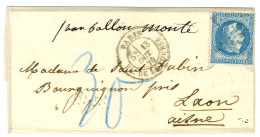 par ballon monté
PARIS
30
Madame de Saint Aubin
Bourguignon près
Laon
Aisne